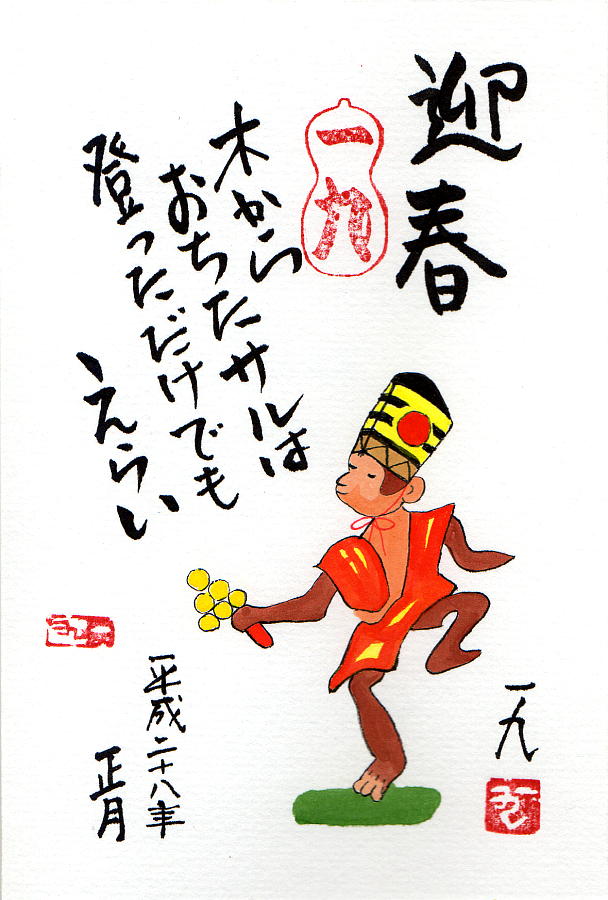 迎春
一九
木から
おちたサルは
登っただけでも
えらい
平成二十八年
正月
一九